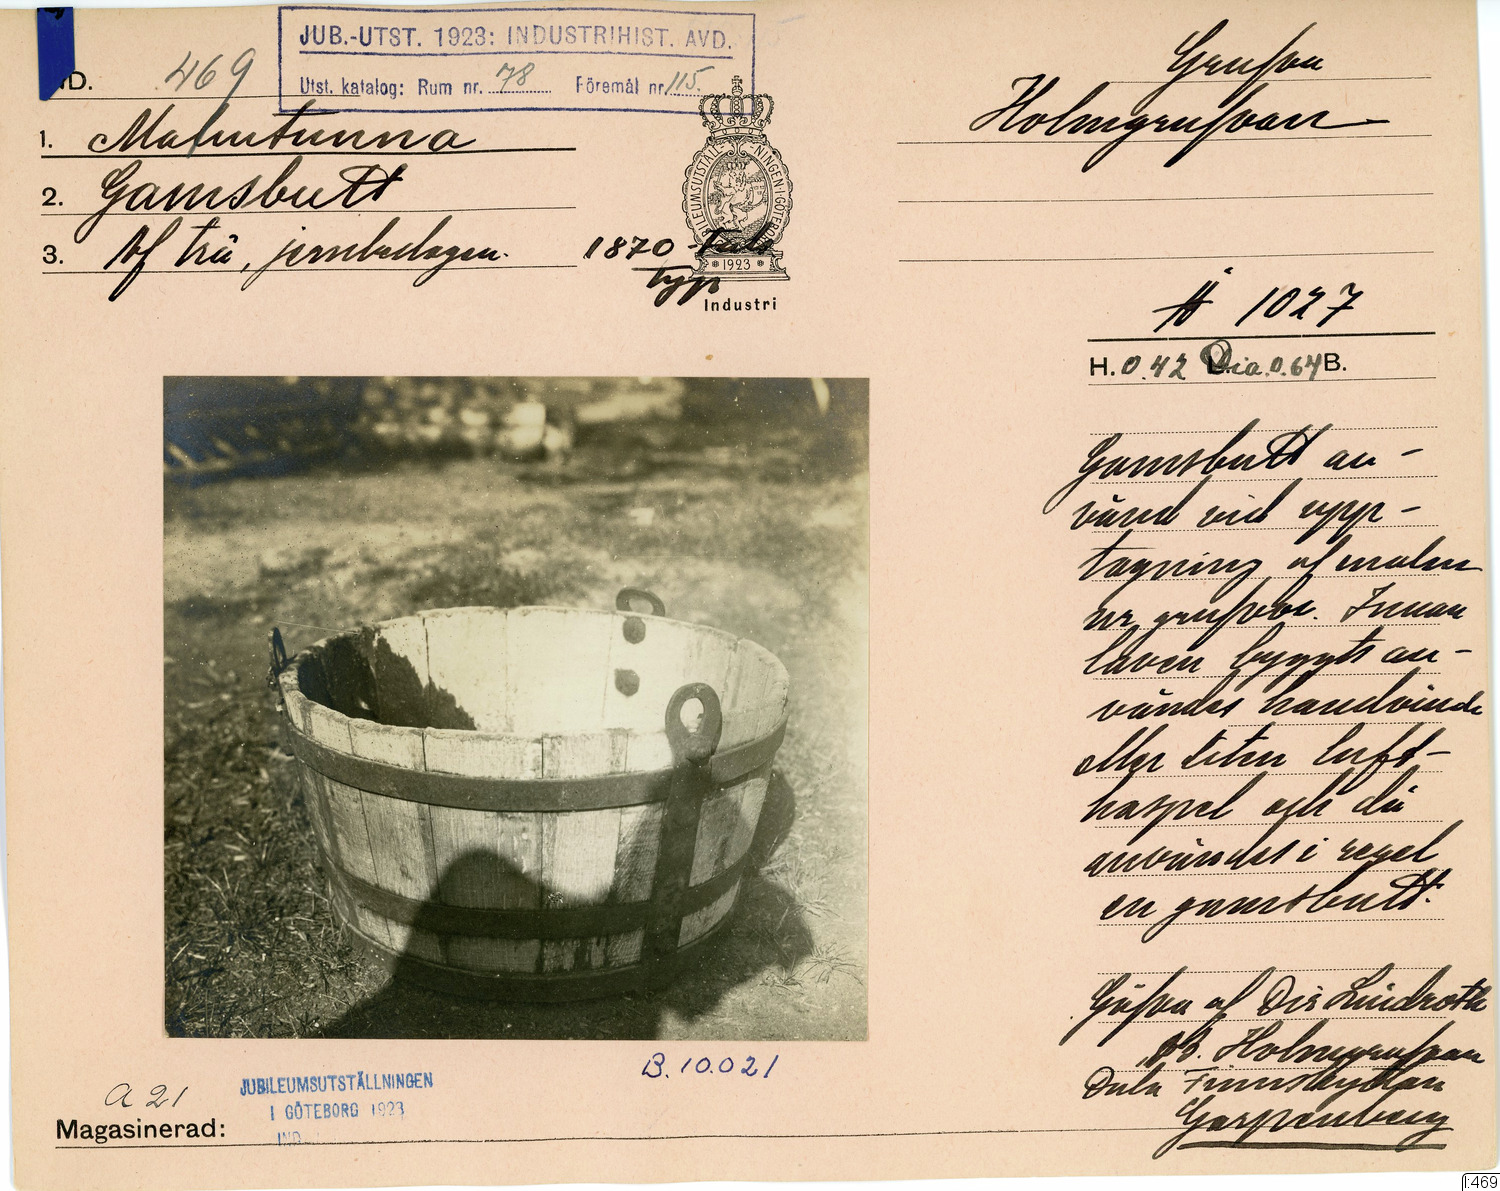 JUB.-UTST. 1923: INDUSTRIHIST. AVD.
Utst. katalog: Rum nr. 78 Föremål nr 115.
ND. 469
1. Malmtunna
2. Gamsbutt
3. Af trä, jernbeslagen.
1870-tals
typ
JUBILEUMSUTSTÄLLNINGEN I GÖTEBORG
* 1923 *
Industri
Grufva
Holmgrufvan
# 1027
H. 0.42 Dia. 0.64 B.
Gamsbutt an-
vänd vid upp-
tagning af malm
ur grufvor. Innan
laven byggts an-
vändes handvinde
eller liten luft-
haspel och då
användes i regel
en gamsbutt.
Gåfva af Dis Lindroth
Holmgrufvan
Dala Finnshyttan
Garpenberg
B.10.021
A 21
JUBILEUMSUTSTÄLLNINGEN
I GÖTEBORG 1923
IND.
Magasinerad:
I:469